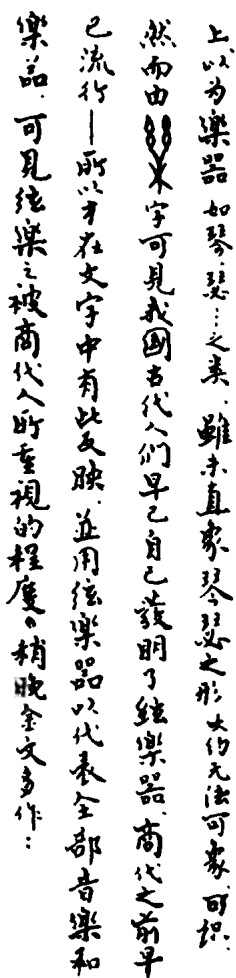 上以为樂器如琴.瑟…之类.雖未直象琴瑟之形大约无法可象.可识.
然而由字可見我國古代人们早已自己發明了絃樂器.商代之前早
已流行—所以才在文字中有此反映.並用絃樂器以代表全部音樂和
樂器.可見絃樂之被商代人所重視的程度。稍晚金文多作：